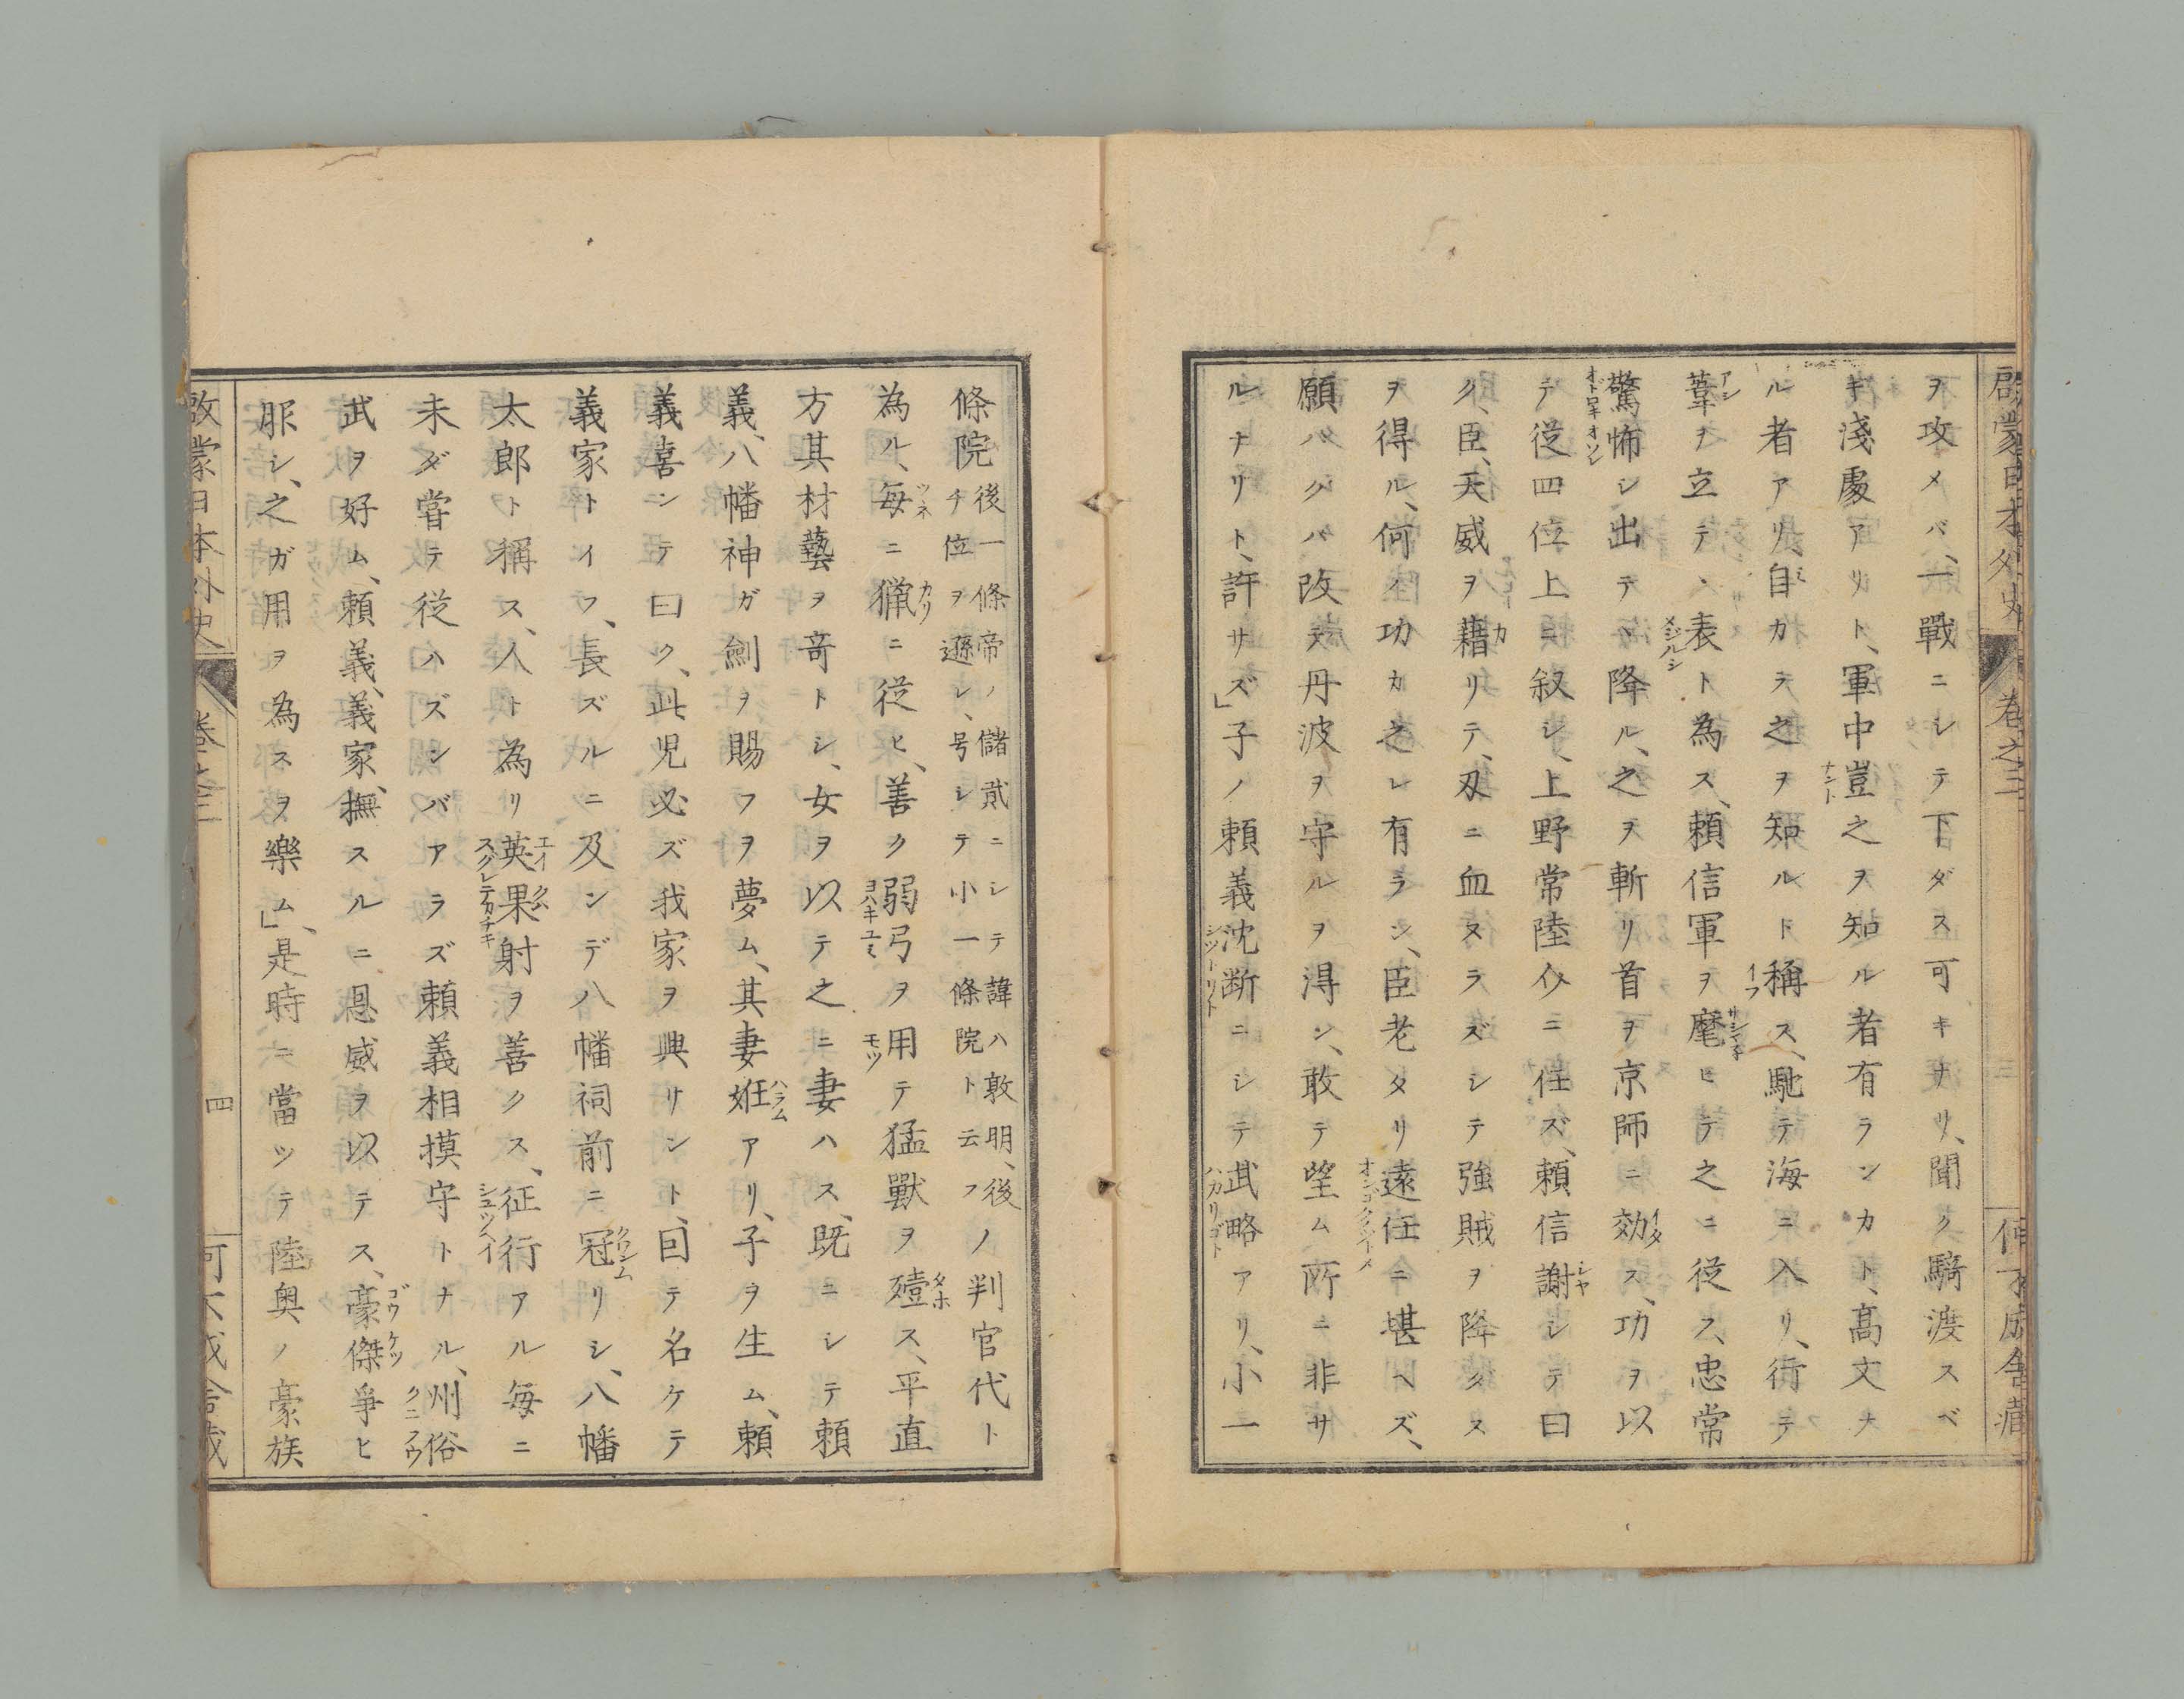 啓蒙日本外史 卷之二
ヲ攻メバ、一戰ニシテ下ダス可キナリ、聞ク騎渡スベ
キ淺處アリト、軍中豈之ヲ知ル者有ランカト、髙文ナ
ル者アリ、自カラ之ヲ知ルト稱ス、馳テ海ニ入リ、行テ
葦ヲ立テヽ表ト為ス、頼信軍ヲ麾ヒテ之ニ從フ、忠常
驚怖シ出テヽ降ル、之ヲ斬リ首ヲ京師ニ効ス、功ヲ以
テ從四位上ニ叙シ、上野常陸介ニ任ズ、頼信謝シテ曰
ク、臣、天威ヲ藉リテ、刄ニ血ヌラズシテ強賊ヲ降クス
ヲ得ル、何ノ功カ之レ有ラン、臣老タリ遠任ニ堪ヘズ、
願ハクバ改テ丹波ヲ守ルヲ淂ン、敢テ望ム所ニ非サ
ルナリト、許サズ」子ノ頼義沈断ニシテ武略アリ、小一
條院 後一條帝ノ儲貳ニシテ諱ハ敦明、後チ位ヲ遜レ、号シテ小一條院ト云フ ノ判官代ト
為ル、毎ニ獵ニ從ヒ、善ク弱弓ヲ用テ猛獸ヲ殪ス、平直
方其材藝ヲ竒トシ、女ヲ以テ之ニ妻ハス、既ニシテ頼
義、八幡神ガ劍ヲ賜フヲ夢ム、其妻姙アリ、子ヲ生ム、頼
義喜ンテ曰ク、此児必ズ我家ヲ興サント、因テ名ケテ
義家トイフ、長ズルニ及ンデ八幡祠前ニ冠リシ、八幡
太郎ト稱ス、人ト為リ英果射ヲ善クス、征行アル毎ニ
未ダ甞テ從ハズンバアラズ頼義相摸守トナル、州俗
武ヲ好ム、頼義、義家、撫スルニ恩威ヲ以テス、豪傑爭ヒ
服シ、之ガ用ヲ為スヲ樂ム」、是時ニ當ツテ陸奥ノ豪族
啓蒙日本外史 卷之二 四